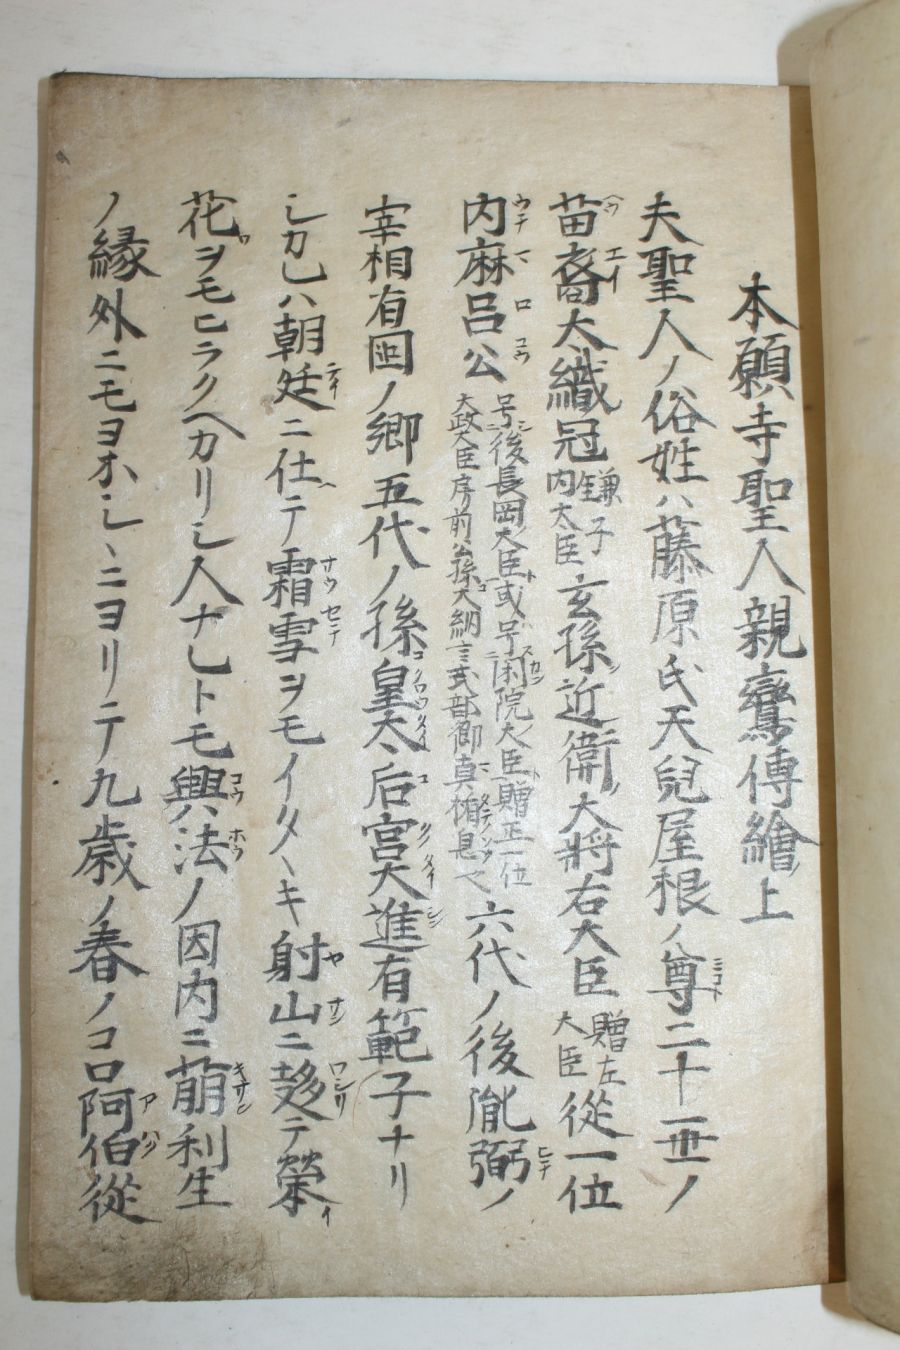 本願寺聖人親鸞傳繪上
夫聖人ノ俗姓ハ藤原氏天兒屋根ノ尊二十一世ノ
苗裔大織冠鎌子内大臣玄孫近衛大將右大臣贈左大臣從一位
内麻呂公号後長岡大臣或号閑院大臣贈正一位大政大臣房前公孫大納言式部卿真楯息也六代ノ後胤弼ノ
宰相有国ノ卿五代ノ孫皇太后宮大進有範子ナリ
シカレハ朝廷ニ仕テ霜雪ヲモイタヽキ射山ニ趍テ榮
花ヲモヒラクヘカリシ人ナレトモ興法ノ因内ニ萠利生
ノ縁外ニモヨホシヽニヨリテ九歳ノ春ノコロ阿伯從